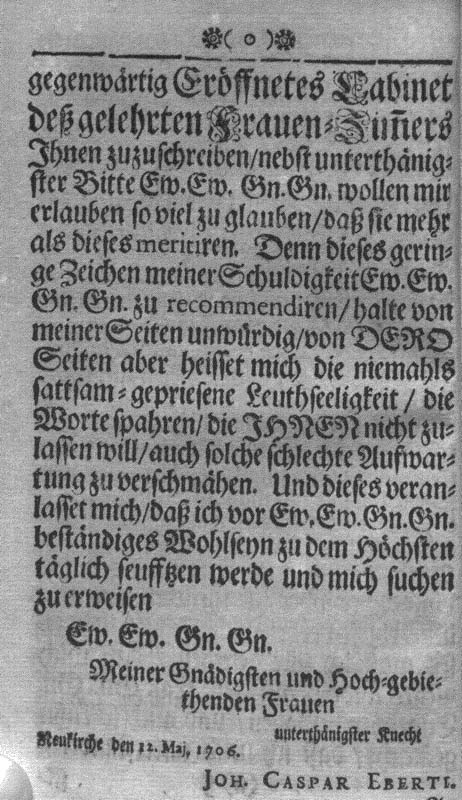 ❋( o )❋
gegenwärtig Eröffnetes Cabinet
deß gelehrten Frauen-Zim̅ers
Ihnen zuzuschreiben/nebst unterthänig-
ster Bitte Ew. Ew. Gn. Gn. wollen mir
erlauben so viel zu glauben/daß sie mehr
als dieses meritiren. Denn dieses gerin-
ge Zeichen meiner Schuldigkeit Ew. Ew.
Gn. Gn. zu recommendiren/halte von
meiner Seiten unwürdig/von DERO
Seiten aber heisset mich die niemahls
sattsam-gepriesene Leuthseeligkeit / die
Worte spahren/die JHNEN nicht zu-
lassen will/auch solche schlechte Aufwar-
tung zu verschmähen. Und dieses veran-
lasset mich/daß ich vor Ew. Ew. Gn. Gn.
beständiges Wohlseyn zu dem Höchsten
täglich seufftzen werde und mich suchen
zu erweisen
Ew. Ew. Gn. Gn.
Meiner Gnädigsten und Hoch-gebie-
thenden Frauen
unterthänigster Knecht
Neukirche den 12. Maj, 1706.
JOH. CASPAR EBERTI.